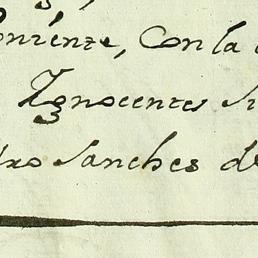 oniente, Con la
Ygnocentes Si
dro Sanches de